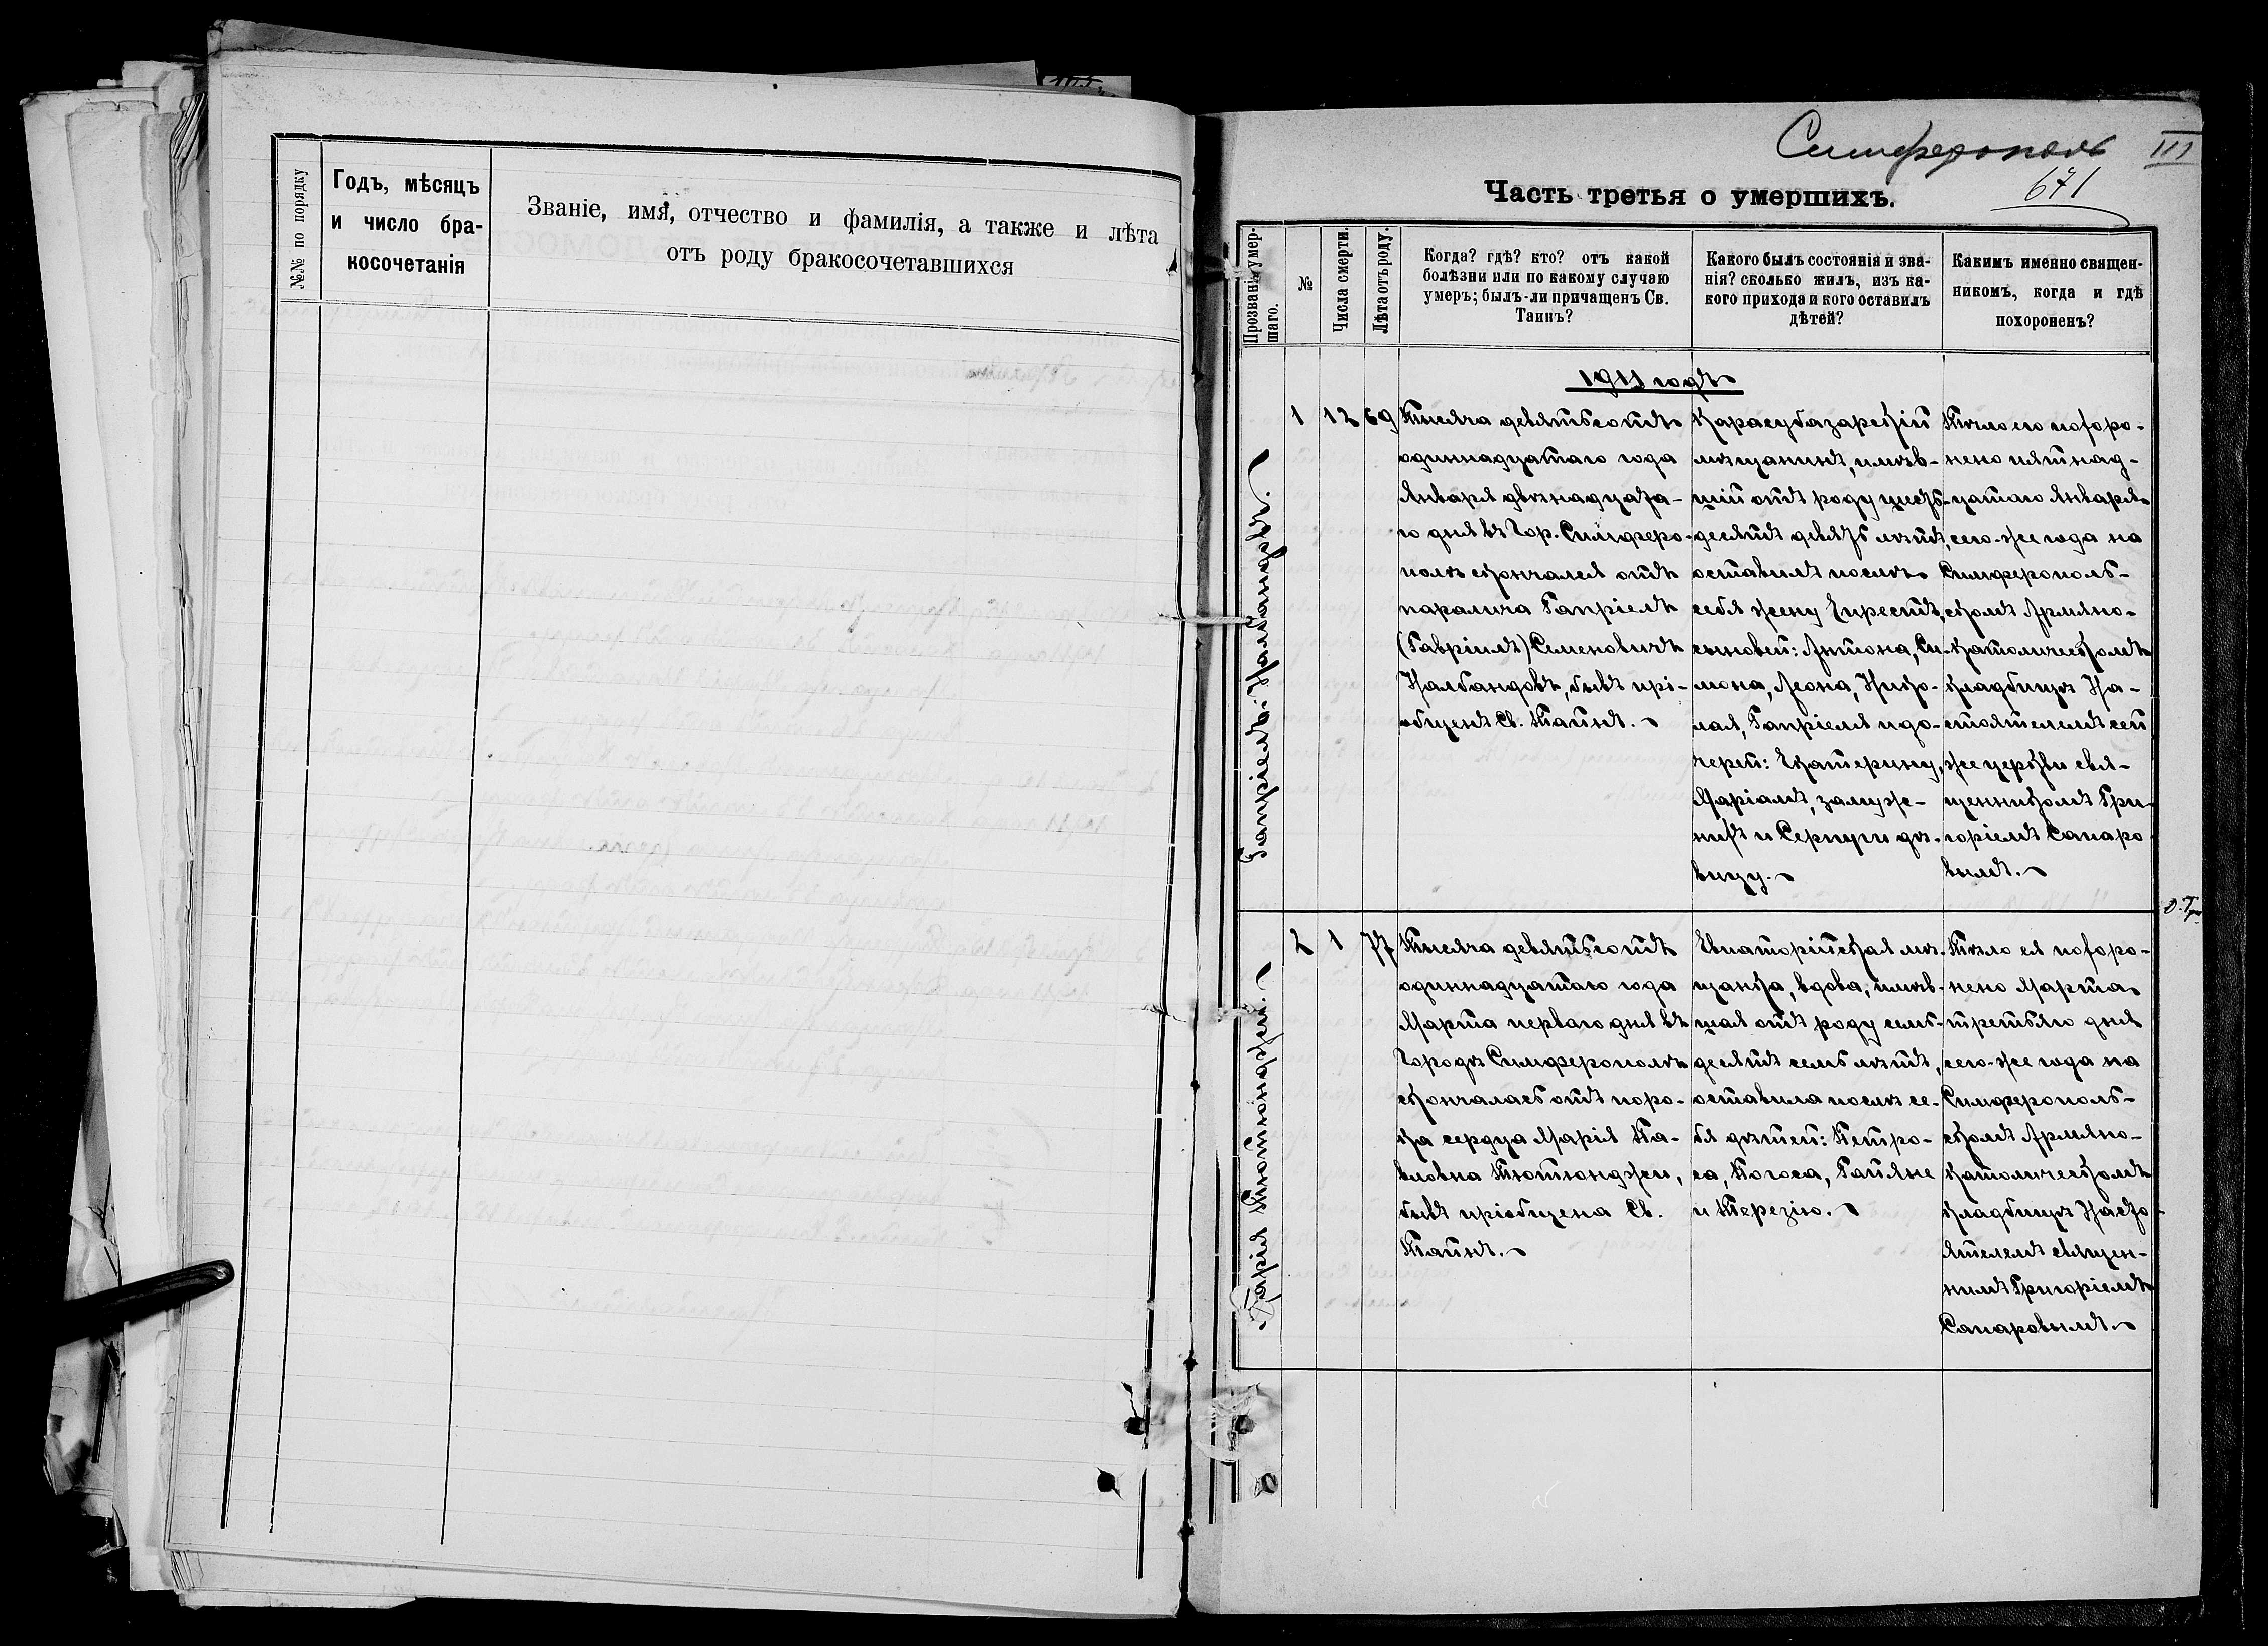 №№ по порядку
Годъ, мѣсяцъ
и число бра-
косочетанія
Званіе, имя, отчество и фамилія, а также и лѣта
отъ роду бракосочетавшихся
Симферополь III
671
Часть третья о умершихъ.
Прозваніе умер-
шаго.
№
Числа смерти.
Лѣта отъ роду.
Когда? гдѣ? кто? отъ какой
болѣзни или по какому случаю
умеръ; былъ-ли причащенъ Св.
Таинъ?
Какого былъ состоянія и зва-
нія? сколько жилъ, изъ ка-
кого прихода и кого оставилъ
дѣтей?
Какимъ именно священ-
никомъ, когда и гдѣ
похороненъ?
1911 годъ
Гапріелъ Налбандовъ.
1
12
69
Тысяча девятьсотъ
одиннадцатаго года
Января двѣнадцата-
го дня въ Гор. Симферо-
полѣ скончался отъ
паралича Гапріелъ
(Гавріилъ) Семеновичъ
Налбандовъ, бывъ прі-
общенъ Св. Тайнъ.
Карасубазарскій
мѣщанинъ, имѣв-
шій отъ роду шесть-
десятъ девять лѣтъ,
оставилъ послѣ
себя жену Еиресиъ,
сыновей: Антона, Си-
мона, Леона, Нико-
лая, Гапріеля и до-
черей: Екатерину,
Маріамъ, замуж-
нихъ и Серпуги дѣ-
вицу.
Тѣло его похоро-
нено пятнад-
цатаго Января
сего-же года на
Симферополь-
скомъ Армяно-
Католическомъ
кладбищѣ На-
стоятелемъ сей
же церкви свя-
щенникомъ Гри-
горіемъ Сапаро
вымъ.
Марія Тютюнджи.
2
1
77
Тысяча девятьсотъ
одиннадцатаго года
Марта перваго дня въ
Городѣ Симферополѣ
скончалась отъ поро-
ка сердца Марія Па-
вловна Тютюнджи,
бывъ пріобщена Св.
Тайнъ.
Евпаторійская мѣ-
щанка, вдова, имѣв-
шая отъ роду семь-
десятъ семь лѣтъ,
оставила послѣ се-
бя дѣтей: Петро-
са, Погоса, Гаіяне
и Терезію.
Тѣло ея похоро-
нено Марта
третьяго дня
сего-же года на
Симферополь-
скомъ Армяно-
Католическомъ
кладбищѣ Насто
ятелемъ священ-
нимъ Григоріемъ
Сапаровымъ.